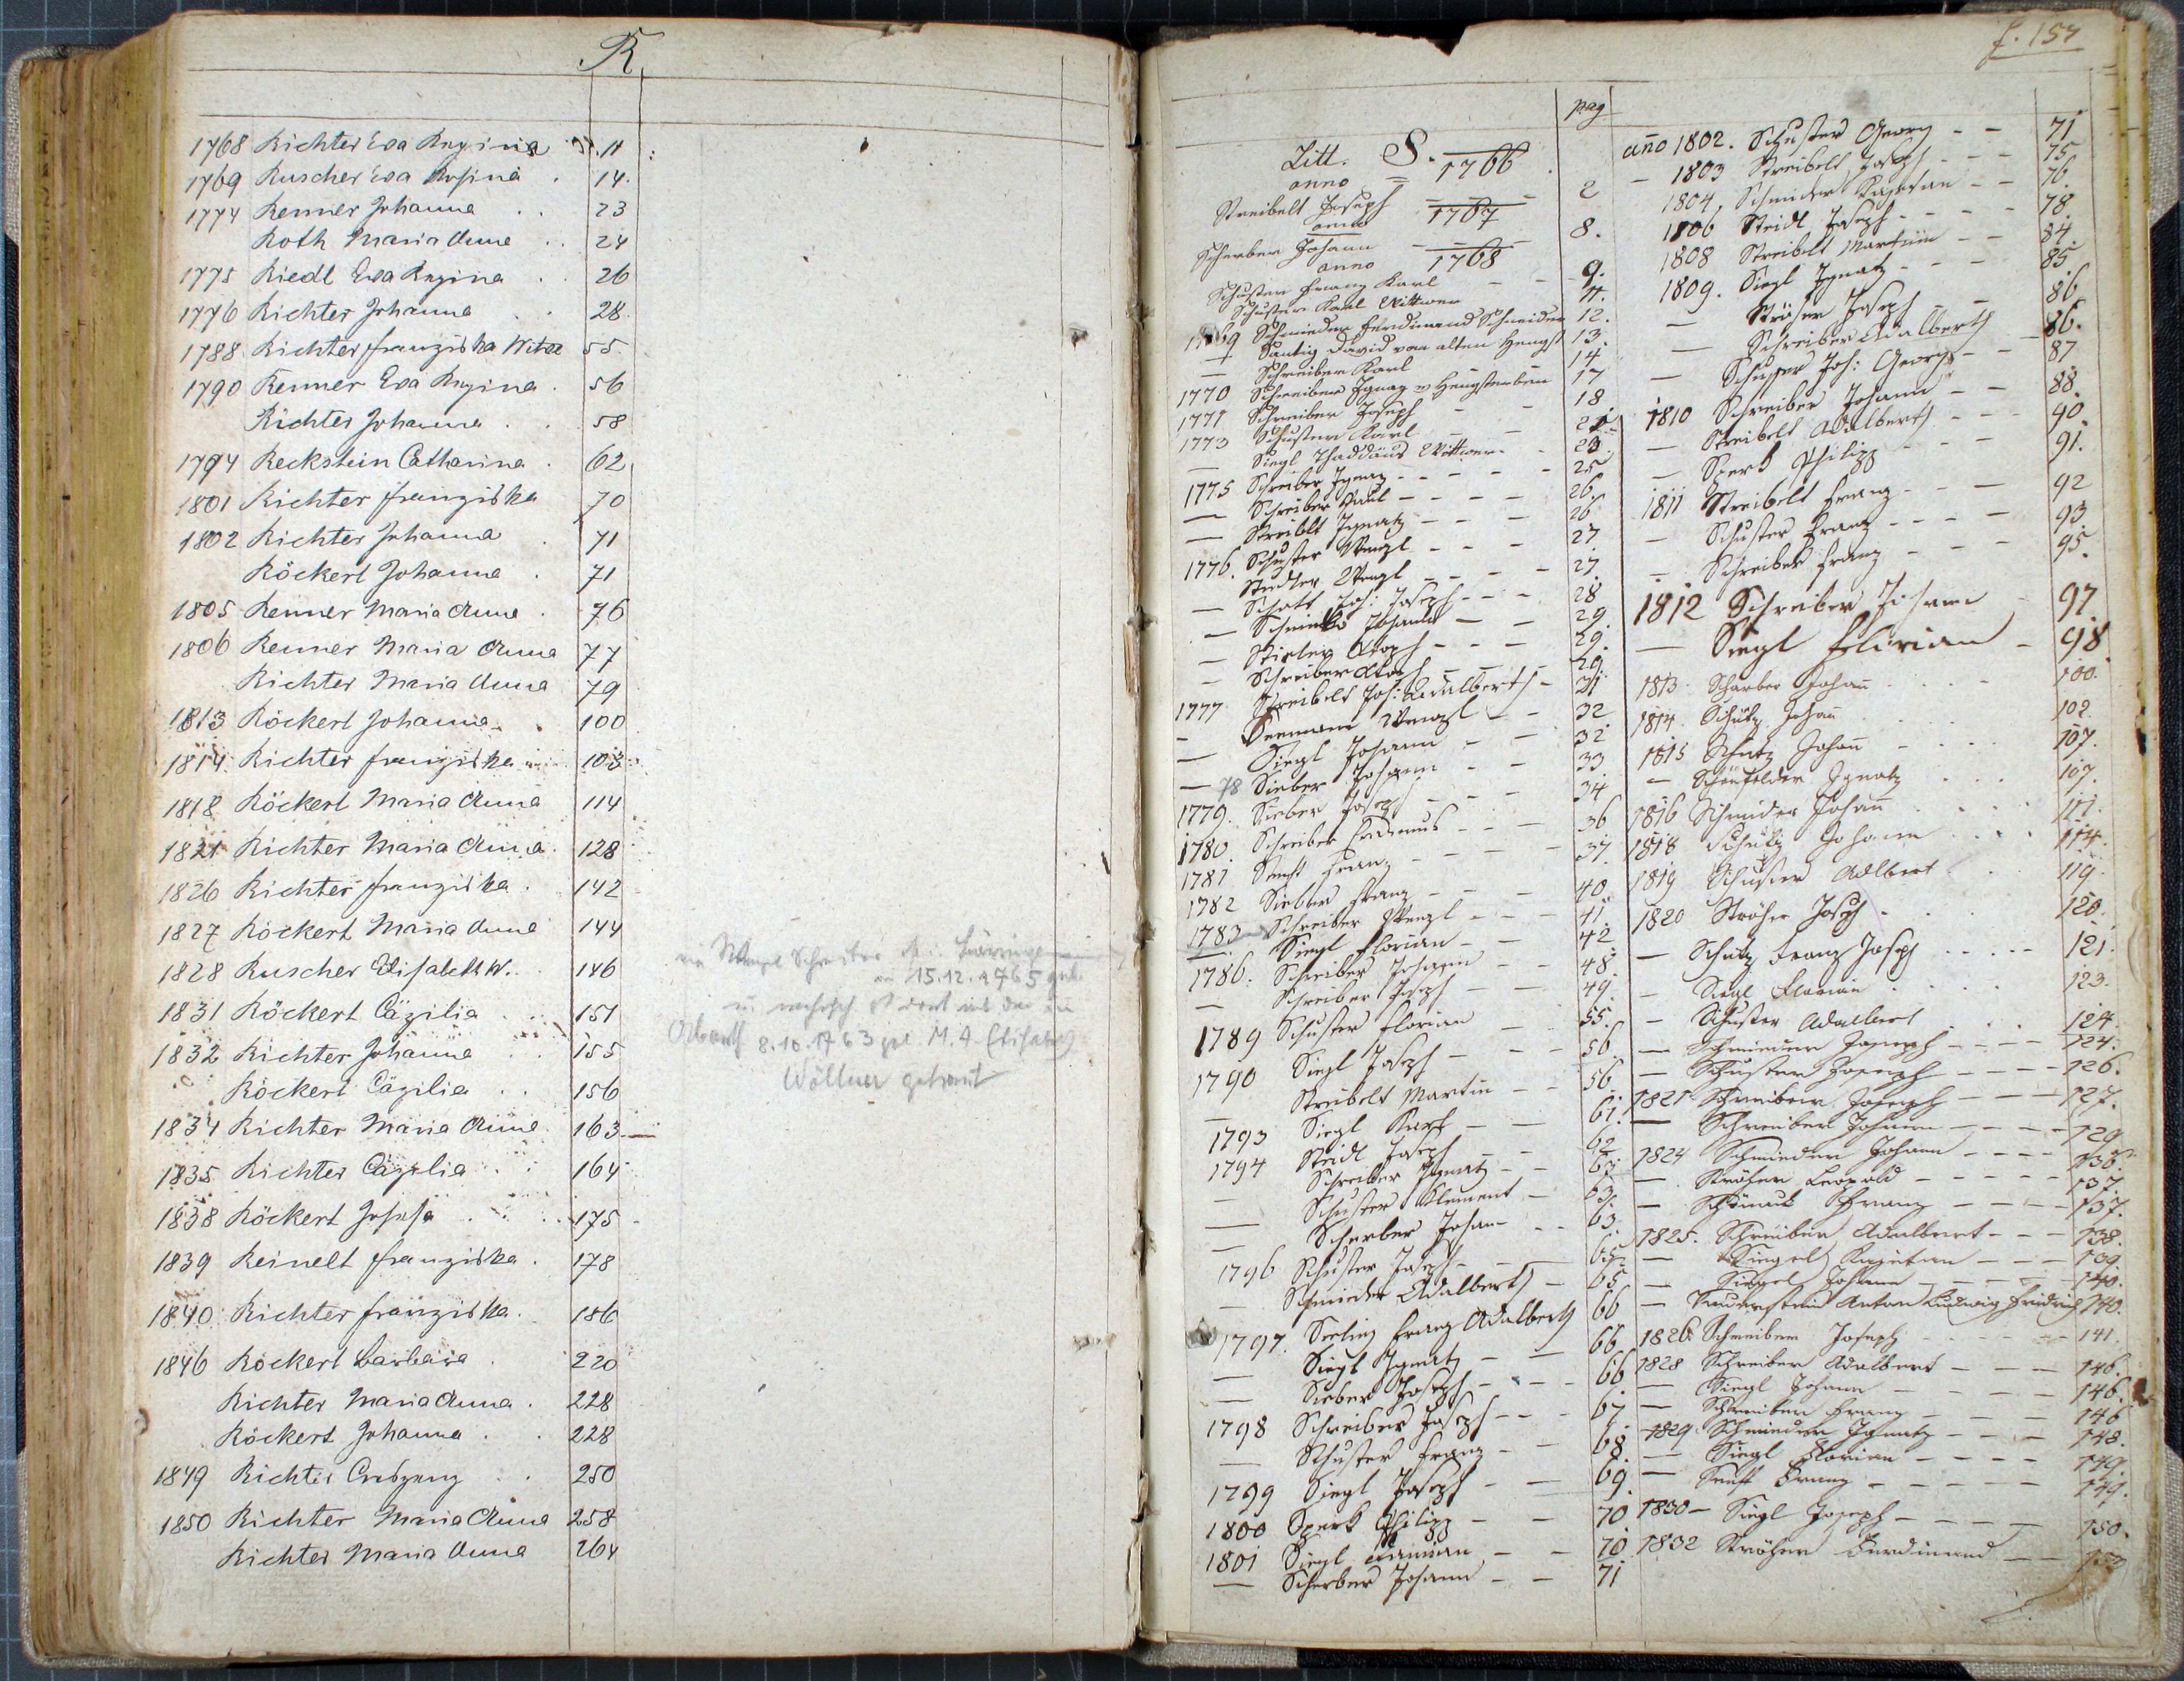 R
1768 Richter Eva Regina 11
1769 Ruscher Eva Rosina . 14.
1774 Renner Johanna . . 23
Roth Maria Anna . . 24
1775 Riedl Eva Regina . . 26
1776 Richter Johanna . . 28.
1788 Richter Franziska Witwe 55.
1790 Renner Eva Regina . 56
Richter Johanna . . 58
1794 Reckstein Catharina . 62
1801 Richter Franziska 70
1802 Richter Johanna . 71
Röckert Johanna . 71
1805 Renner Maria Anna . 76
1806 Renner Maria Anna 77
Richter Maria Anna 79
1813 Röckert Johanna . 100
1814 Richter Franziska 103
1818 Röckert Maria Anna 114
1821 Richter Maria Anna 128
1826 Richter Franziska . 142
1827 Röckert Maria Anna 144
1828 Ruscher Elisabeth W. . 146
1831 Röckert Cäzilia . . 151
1832 Richter Johanna . . 155
Röckert Cäzilia . . 156
1834 Richter Maria Anna 163
1835 Richter Cäzilia . . 164
1838 Röckert Josefa . . . 175
1839 Reinelt Franziska . 178
1840 Richter Franziska . 186
1846 Röckert Barbara . 220
Richter Maria Anna . 228
Röckert Johanna . . 228
1849 Richter . . 250
1850 Richter Maria Anna 258
Richter Maria Anna 264
Wenzl Schreiber
15.12.1765
8.10.1763 M. A. Elisabeth
Wöllner getraut
f. 157
pag
Litt. S.
anno 1766
Streibelt Joseph 2
anno 1767
Scherber Johann 8.
anno 1768
Schuster Franz Karl 9.
Schuster Karl Wittwer 11.
Schmieder Ferdinand Schneider 12.
— David von alten Hengst 13.
— Schreiber Karl 14
1770 Schreiber Ignaz 17
1771 Schreiber Joseph 18
1773 Schuster Karl
— Siegl Thaddäus Wittwer 23
1775 Schreiber Ignaz 25
— Schreiber Paul 26.
— Streiblt Ignatz 26
1776. Schuster Wenzl 27
Wenzl 27
— Schatt Joh: Joseph 28
— Johann 29.
— 29.
— Schreiber 29.
1777 Streibelt Joh: Adalbert 31
- Wenzl 32
— Siegl Johann 32
— 78 Sieber Johann 33
1779. Sieber Joseph 34
1780. Schreiber 36
1781 Senft Franz 37.
1782 Sieber Franz 40
1783 Schreiber Wenzl 41
— Siegl Florian 42
1786. Schreiber Johann 48
— Schreiber Joseph 49.
1789 Schuster Florian 55.
1790 Siegl Joseph 56
— Streibelt Martin 56.
1793 Siegl Karl 61.
1794 Steidl Joseph 62
— Schreiber Ignatz 63
— Schuster Klement 63
— Scherber Johan 63
1796 Schuster Joseph 65
— Schmieder Adalbert 65
1797. Seeling Franz Adalbert 66
— Siegl Ignatz 66
— Sieber Joseph 66
1798 Schreiber Joseph 67
— Schuster Franz 68
1799 Siegl Joseph 69
1800 Sperk Philipp 70
1801 Siegl 70
— Scherber Johann 71
año 1802. Schuster Georg 71
— 1803 Streibelt Joseph 75
1804. Schmieder Kajetan 76
1806 Steidl Joseph 78
1808 Streibelt Martin 84
1809. Siegl Ignatz 85
— Ströher Joseph 86
— Schreiber Adalbert 86.
— Schuster Joh: Georg 87
1810 Schreiber Johann 88.
— Streibelt Adalbert 90
— Sperk Philipp 91.
1811 Streibelt Franz 92
— Schuster Franz 93
— Schreiber Franz 95.
1812 Schreiber Johann 97
— Siegl Florian 98
1813 Scharber Johañ 100.
1814. Schütz Johañ 102
1815 Schütz Johañ 107.
— Schönfelder Ignatz 109.
1816 Schmieder Johañ 111.
1818 Schütz Johann 114.
1819 Schuster Adlbert 119.
1820 Ströher Joseph 120.
— Schütz Franz Joseph 121.
— Siegl Florian 123.
— Schuster Adalbert 124.
— Schmieder Joseph 124.
— Schuster Joseph 126.
1821 Schreiber Joseph 127.
— Schreiber Johann 129
1824 Schmieder Johann 136.
— Ströher Leopold 137.
— Franz 137.
1825. Schreiber Adalbert 138.
— Siegel Kajetan 139.
— Siegel Johann 140.
— Sauerstein Anton Ludwig Friedrich 140.
1826 Schreiber Joseph 141.
1828 Schreiber Adalbert 146.
— Siegl Johann 146.
— Schreiber Franz 146
1829 Schmieder Ignatz 148.
— Siegl Florian 149.
— Senft Franz 149.
1830 — Siegl Joseph 150.
1832 Ströher Ferdinand